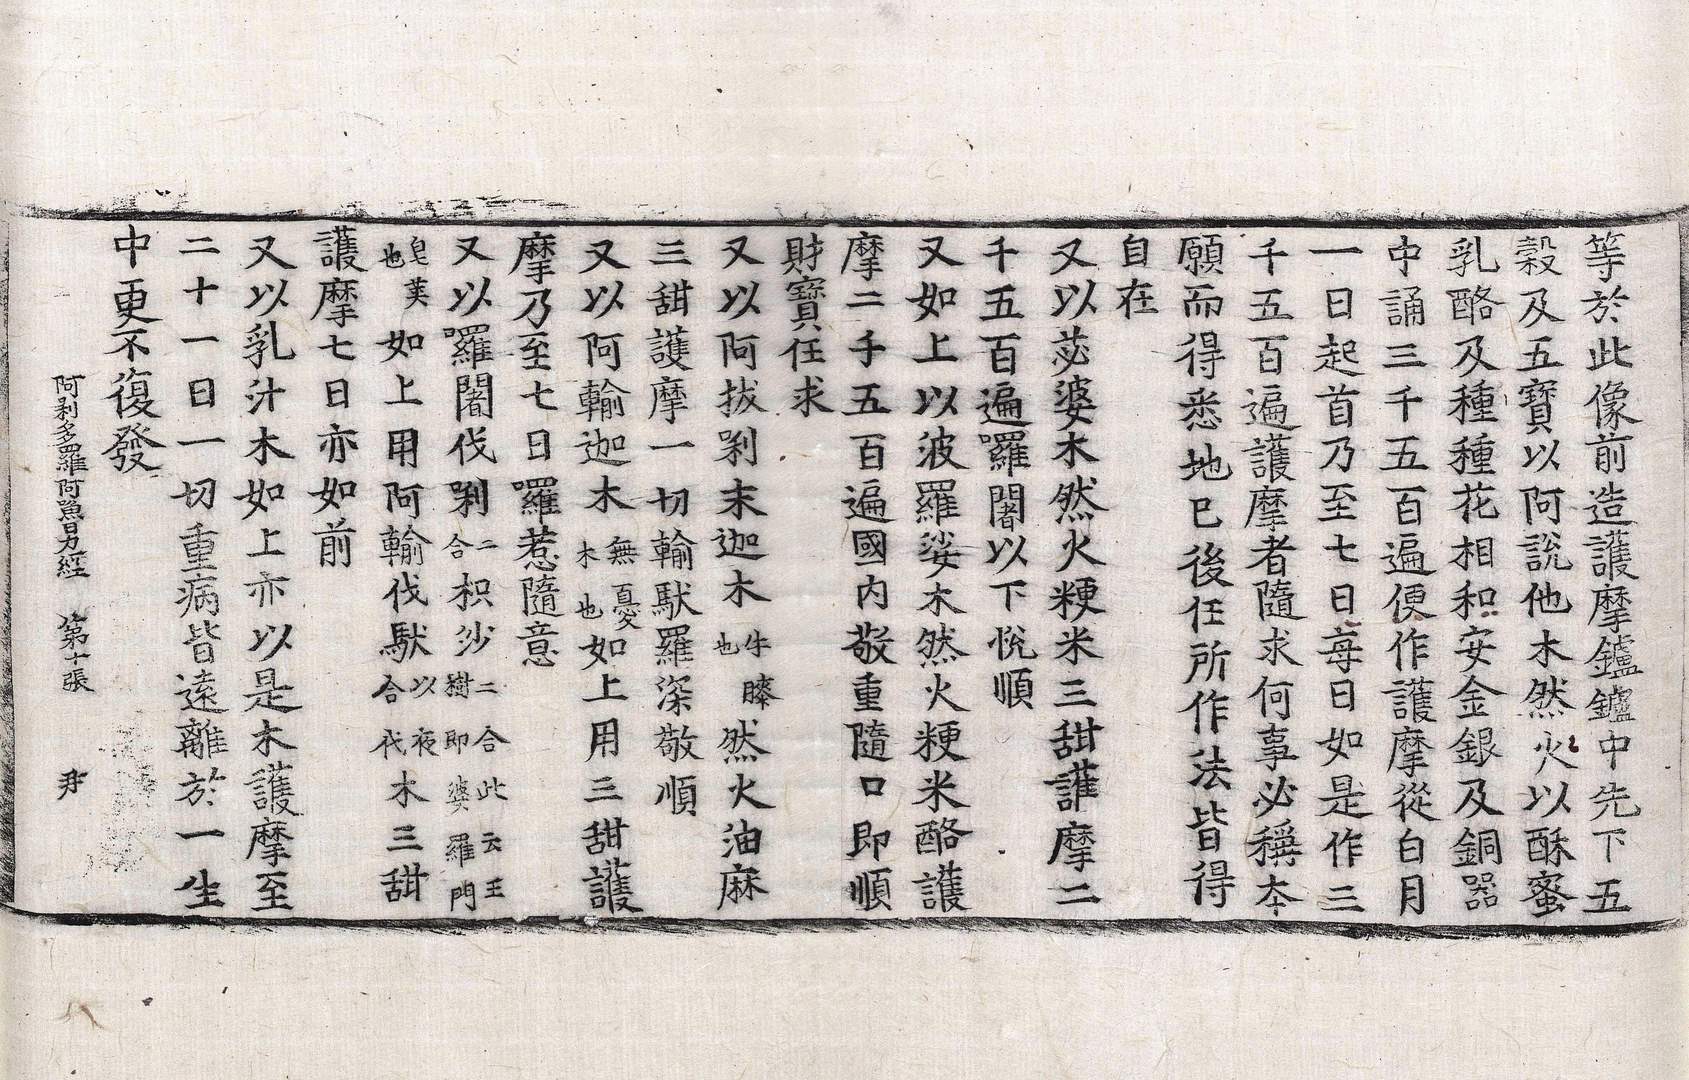 等於此像前造護摩鑪鑪中先下五
糓及五寶以阿說他木然火以酥蜜
乳酪及種種花相和安金銀及銅器
中誦三千五百遍便作護摩從白月
一日起首乃至七日每日如是作三
千五百遍護摩者隨求何事必稱本
願而得悉地已後任所作法皆得
自在
又以苾婆木然火粳米三甜護摩二
千五百遍囉闍以下悅順
又如上以波羅娑木然火粳米酪護
摩二千五百遍國內敬重隨口即順
財寶任求
又以阿拔剁末迦木牛膝也然火油麻
三甜護摩一切輸馱羅深敬順
又以阿輸迦木無憂木也如上用三甜護
摩乃至七日囉惹隨意
又以囉闍伐剁二合枳沙二合此云王樹即婆羅門
皂莢也如上用阿輸伐馱以夜合伐木三甜
護摩七日亦如前
又以乳汁木如上亦以是木護摩至
二十一日一切重病皆遠離於一生
中更不復發
阿剁多羅阿嚕力經 第十張